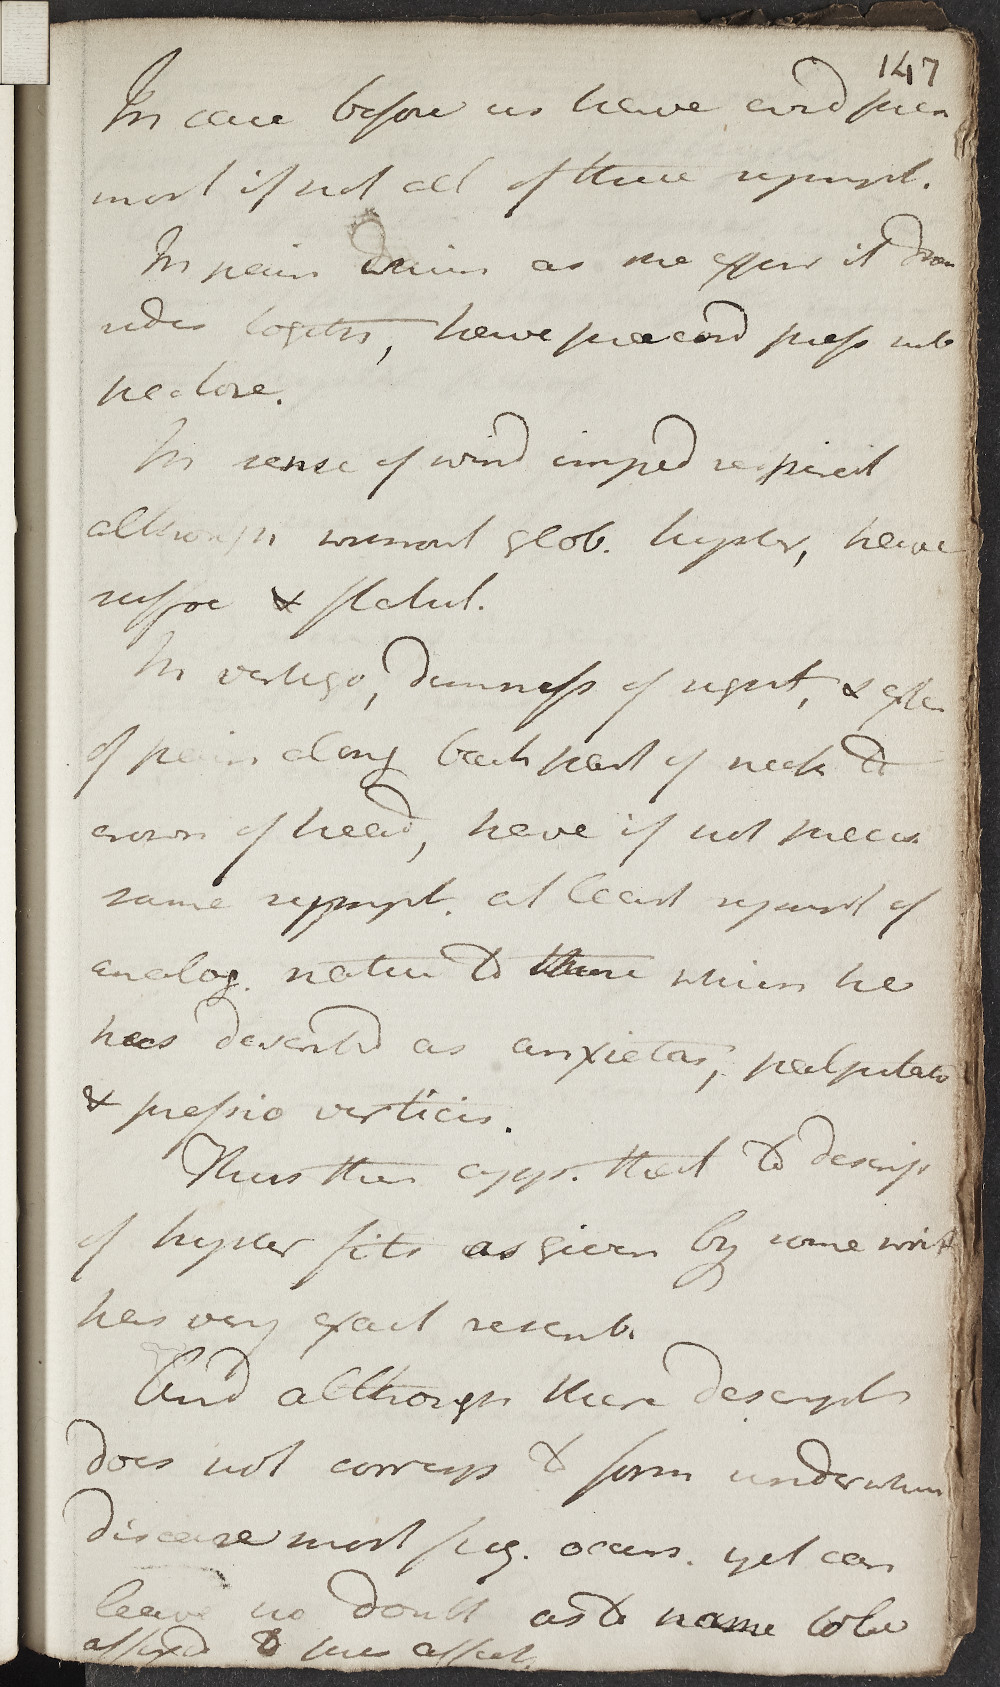 147
In case before us have evid
most if not all of these sympt.
In pain as she express it draw
sides together, have præcord press sub
pectore.
In sense of wind imped respirat
although without glob. hyster, have
suffoc & flatul.
In vertigo, dimness of sight, & often
of pain along back part of neck to
crown of head, have if not precis
same sympt. at least sympt of
analog. nature to those which he
has describd as anxietas, palpitatio
& pressio verticis.
Thus then appr. that to descrip
of hyster fits as given by some writ
has very exact resemb.
And although these descript
does not corresp to form under which
disease most freq. occurs. yet can
leave no doubt as to name to be
affixd to this affect.